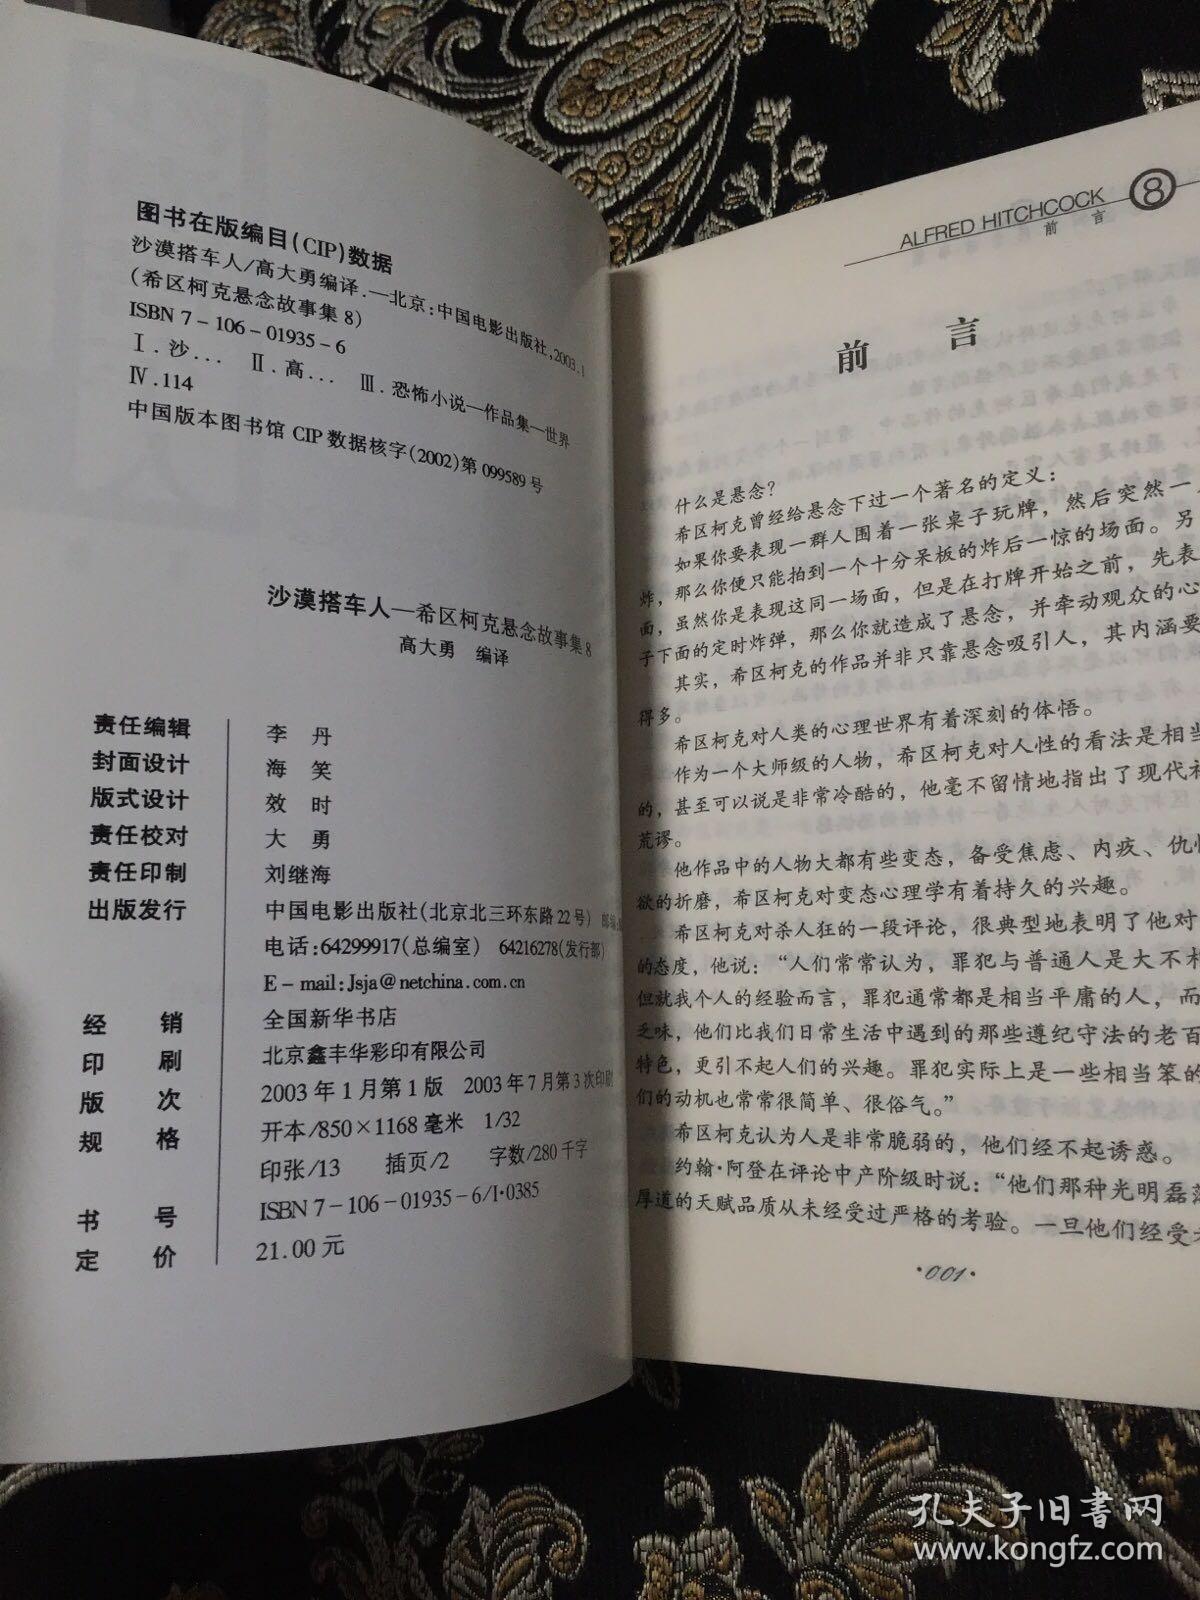 图书在版编目(CIP)数据
沙漠搭车人/高大勇编译.—北京:中国电影出版社,2003.1
(希区柯克悬念故事集8)
ISBN 7-106-01935-6
Ⅰ.沙… Ⅱ.高… Ⅲ.恐怖小说—作品集—世界
Ⅳ.114
中国版本图书馆CIP数据核字(2002)第099589号
沙漠搭车人—希区柯克悬念故事集8
高大勇 编译
责任编辑 李丹
封面设计 海笑
版式设计 效时
责任校对 大勇
责任印制 刘继海
出版发行 中国电影出版社(北京北三环东路22号)
电话:64299917(总编室) 64216278(发行部)
E-mail:Jsja@netchina.com.cn
经销 全国新华书店
印刷 北京鑫丰华彩印有限公司
版次 2003年1月第1版 2003年7月第3次印刷
规格 开本/850×1168毫米 1/32
印张/13 插页/2 字数/280千字
书号 ISBN 7-106-01935-6/I·0385
定价 21.00元
ALFRED HITCHCOCK 8
前言
前言
什么是悬念?
希区柯克曾经给悬念下过一个著名的定义:
如果你要表现一群人围着一张桌子玩牌,然后突然一
炸,那么你便只能拍到一个十分呆板的炸后一惊的场面。另
面,虽然你是表现这同一场面,但是在打牌开始之前,先表
子下面的定时炸弹,那么你就造成了悬念,并牵动观众的心
其实,希区柯克的作品并非只靠悬念吸引人,其内涵要
得多。
希区柯克对人类的心理世界有着深刻的体悟。
作为一个大师级的人物,希区柯克对人性的看法是相当
的,甚至可以说是非常冷酷的,他毫不留情地指出了现代社
荒谬。
他作品中的人物大都有些变态,备受焦虑、内疚、仇恨
欲的折磨,希区柯克对变态心理学有着持久的兴趣。
希区柯克对杀人狂的一段评论,很典型地表明了他对
的态度,他说:“人们常常认为,罪犯与普通人是大不相
但就我个人的经验而言,罪犯通常都是相当平庸的人,而
乏味,他们比我们日常生活中遇到的那些遵纪守法的老百
特色,更引不起人们的兴趣。罪犯实际上是一些相当笨的
们的动机也常常很简单、很俗气。”
希区柯克认为人是非常脆弱的,他们经不起诱惑。
约翰·阿登在评论中产阶级时说:“他们那种光明磊落
厚道的天赋品质从未经受过严格的考验。一旦他们经受
·001·
孔夫子旧书网
www.kongfz.com